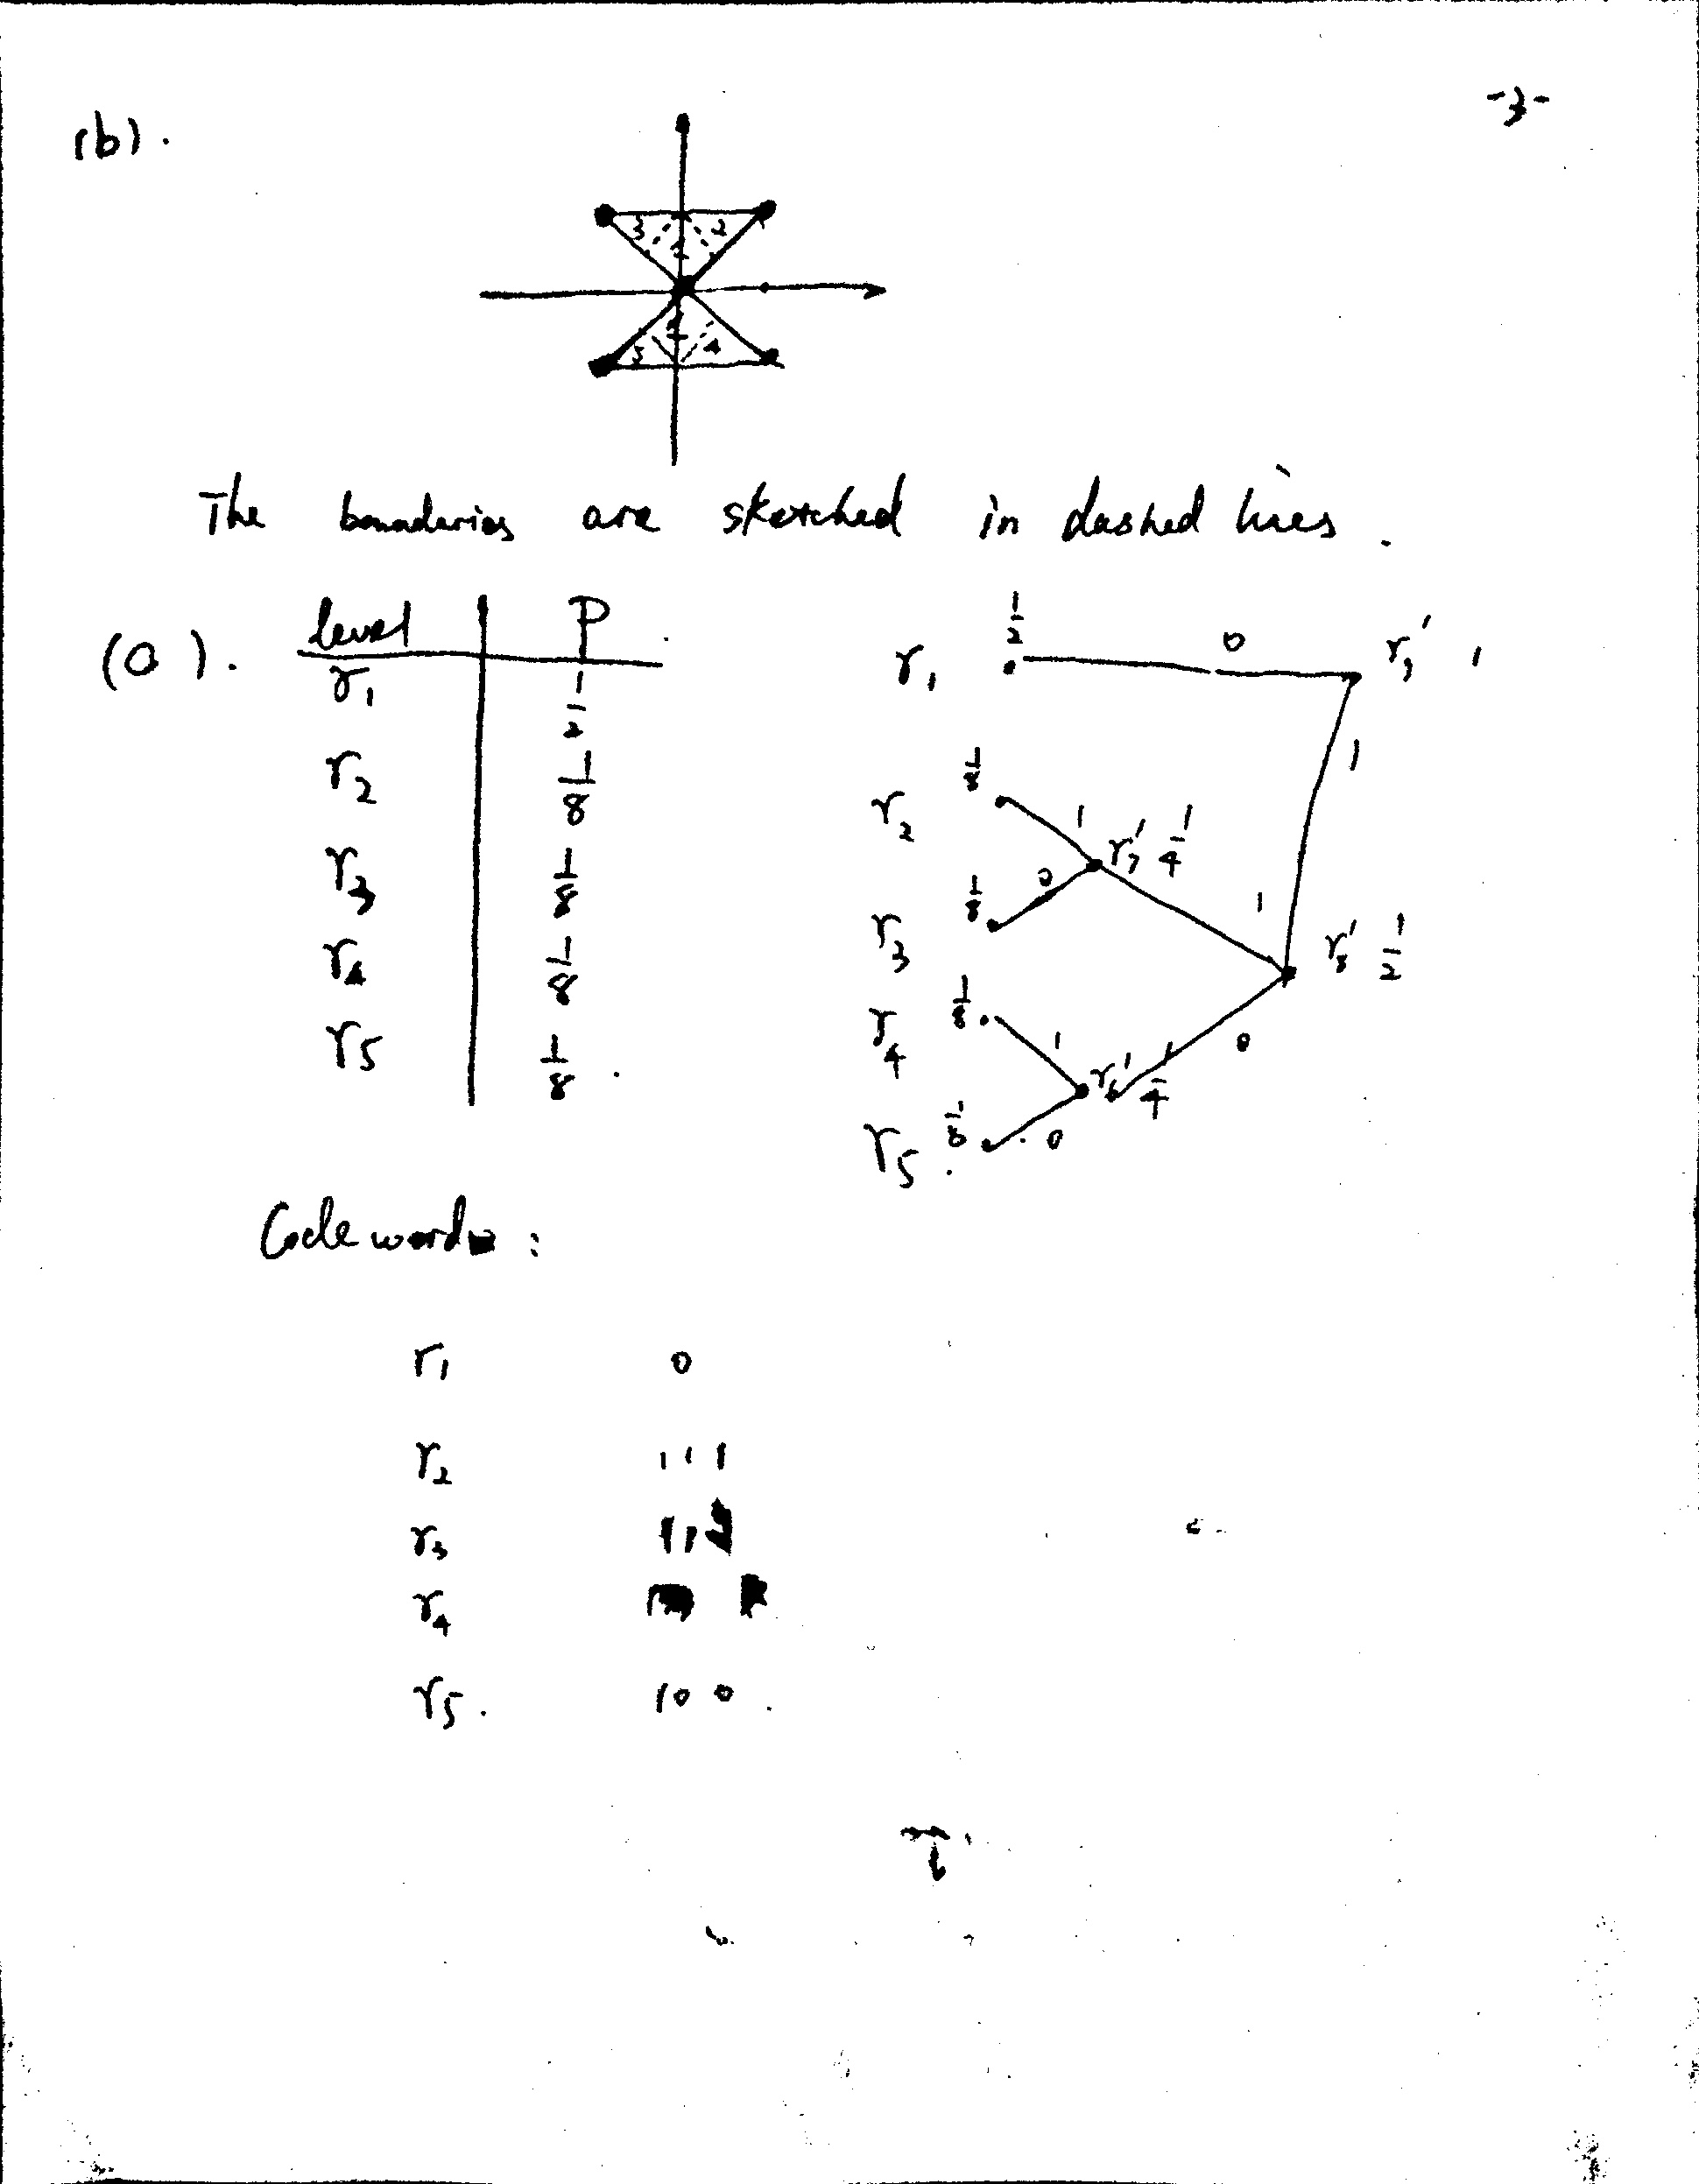 -3-
(b).
3 1 2
5 1 4
The boundaries are sketched in dashed lines.
(a). level P
r1 1/2
r2 1/8
r3 1/8
r4 1/8
r5 1/8.
r1 1/2 0 r9' 1
1
r2 1/8 1 r7' 1/4
1
r3 1/8 0
r8' 1/2
r4 1/8 1
0
r6' 1/4
r5. 1/8 0
Codewords:
r1 0
r2 111
r3 11
r4
r5. 100.